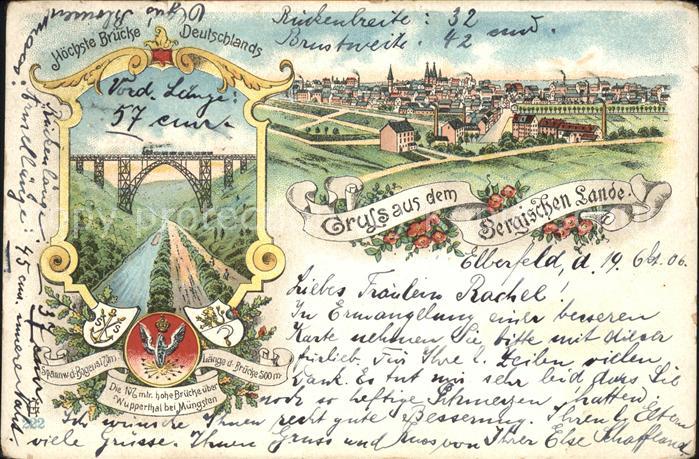 Höchste Brücke Deutschlands
Rückenbreite : 32
Brustweite : 42 cm.
Vord. Länge:
57 cm.
Rückenlänge
Armellänge: 45 cm, innere Naht.
Gruss aus dem
Bergischen Lande.
Elberfeld, d. 19. Okt. 06
Liebes Fräulein Rachel!
In Ermangelung einer besseren
Karte nehmen Sie bitte mit dieser
fürlieb. Für Ihre l. Zeilen vielen
Dank. Es tut mir sehr leid dass Sie
noch so heftige Schmerzen hatten.
Ich wünsche Ihnen recht gute Besserung. Ihren l. Eltern
viele Grüsse. Ihnen Gruss und Kuss von Ihrer Else Schaffland
Spannw. d. Bogens 170m.
Länge d. Brücke 500 m.
Die 107 mtr. hohe Brücke über
Wupperthal bei Müngsten
222